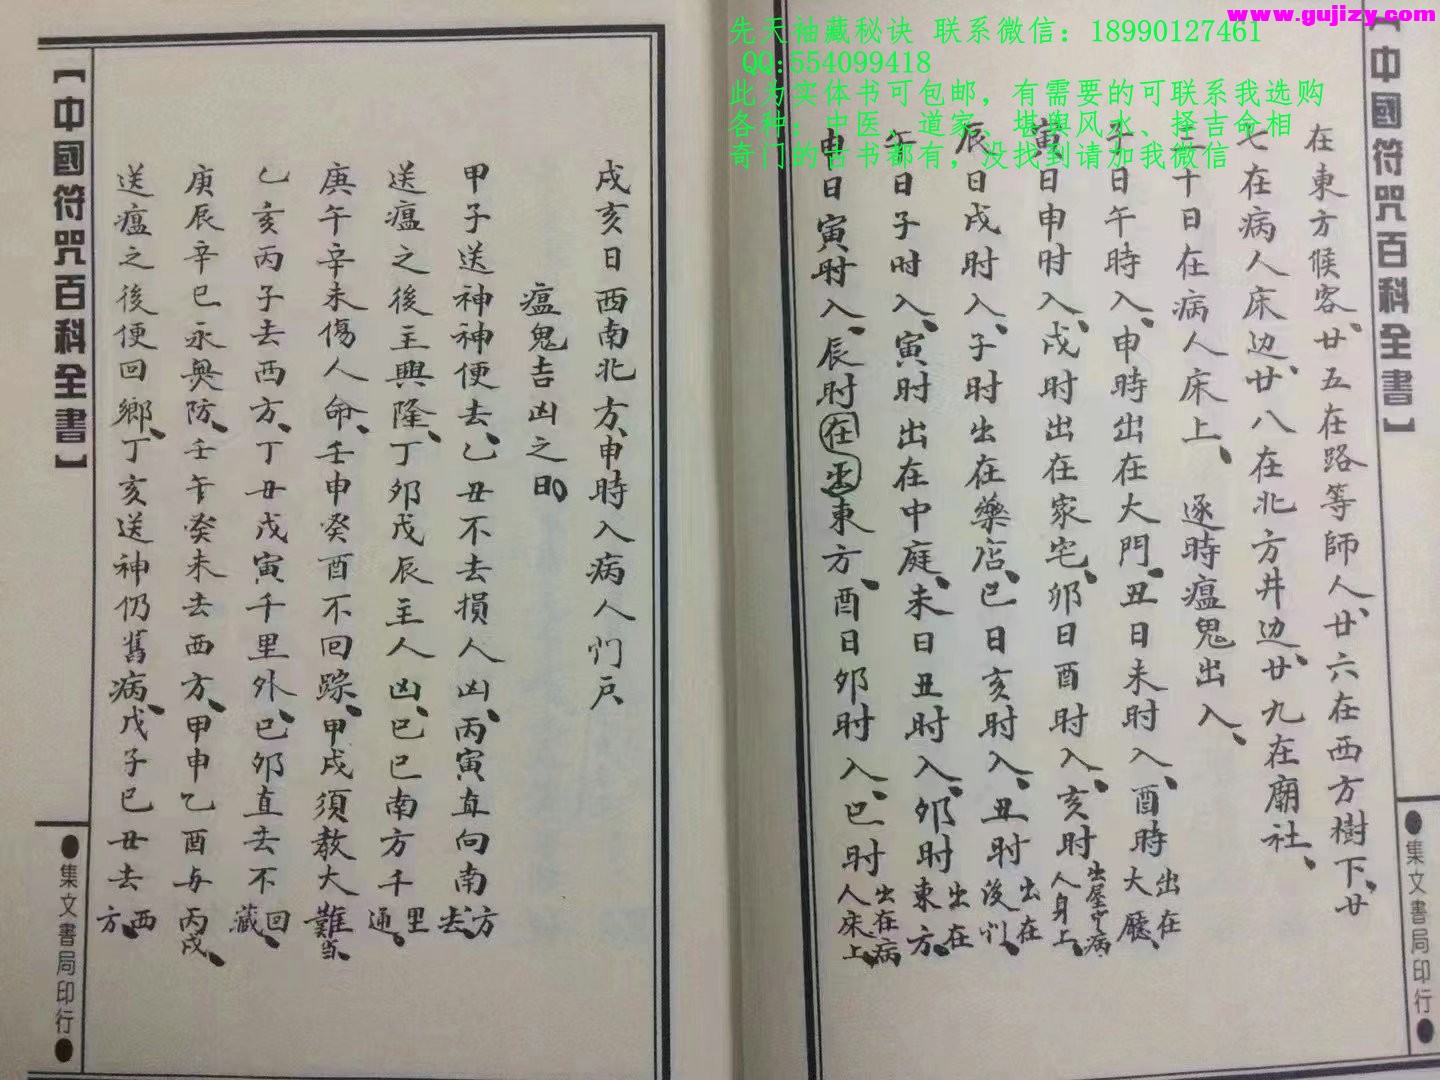 www.gujizy.com
先天袖藏秘诀 联系微信：18990127461
QQ:554099418
此为实体书可包邮，有需要的可联系我选购
各种：中医、道家、堪舆风水、择吉命相
奇门的古书都有，没找到请加我微信
【中國符咒百科全書】
在東方候客、廿五在路等師人、廿六在西方樹下、廿
七在病人床边、廿八在北方井边、廿九在廟社、
三十日在病人床上、 逐時瘟鬼出入、
子日午時入、申時出在大門、丑日未时入、酉時出在大廳、
寅日申时入、戌时出在家宅、卯日酉时入、亥时出屋中病人身上、
辰日戌时入、子时出在藥店、巳日亥时入、丑时出在後门、
午日子时入、寅时出在中庭、未日丑时入、卯时出在東方、
申日寅时入、辰时在出東方、酉日卯时入、巳时出在病人床上、
集文書局印行
戌亥日西南北方、申時入病人们戶
瘟鬼吉凶之日
甲子送神神便去、乙丑不去損人凶、丙寅直向南方去、
送瘟之後主興隆、丁卯戊辰主人凶、己巳南方千里通、
庚午辛未傷人命、壬申癸酉不回踪、甲戌須教大難当、
乙亥丙子去西方、丁丑戊寅千里外、己卯直去不回藏、
庚辰辛巳永無防、壬午癸未去西方、甲申乙酉与丙戌、
送瘟之後便回鄉、丁亥送神仍舊病、戊子己丑去西方、
【中國符咒百科全書】
集文書局印行